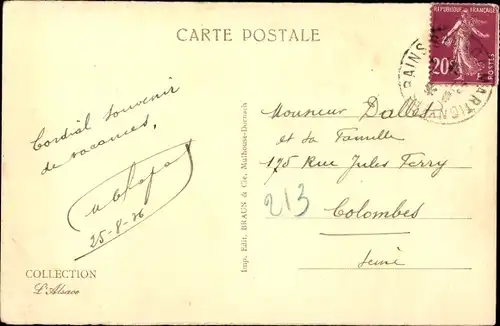 CARTE POSTALE
REPUBLIQUE FRANÇAISE
20c
POSTES
BAINS
MARTIGNY
Cordial souvenir
de vacances,
25-8-36
COLLECTION
L'Alsace
Imp. Edit. BRAUN & Cie, Mulhouse-Dornach
Monsieur Dalles
et sa Famille
175 Rue Jules Ferry
213
Colombes
Seine